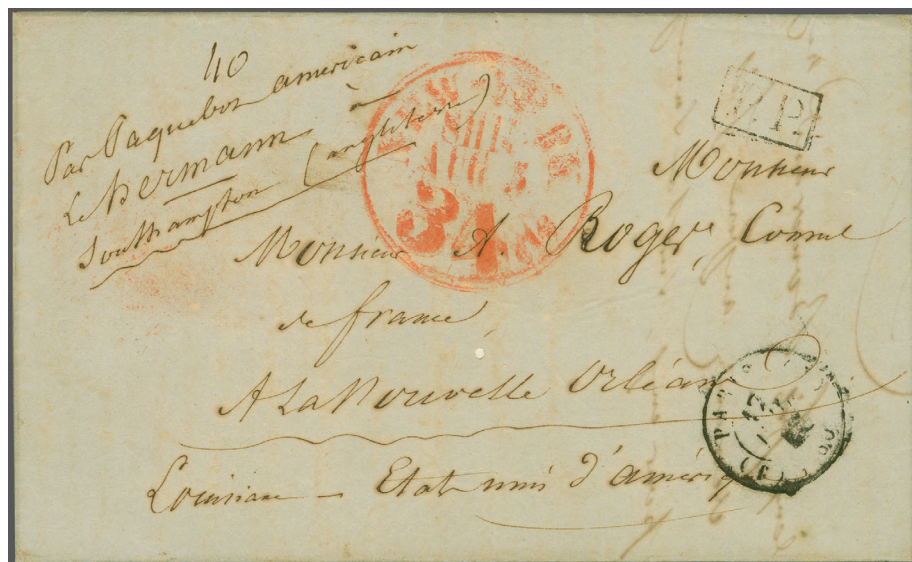 40
Par Paquebot americain
Le hermann à
Southampton (angleterre)
NEW YORK
34
P.P.
Monsieur
Monsieur A. Roger, Consul
de france
A La Nouvelle Orléans
PARIS
(60)
Louisiane - Etats unis d'amériq